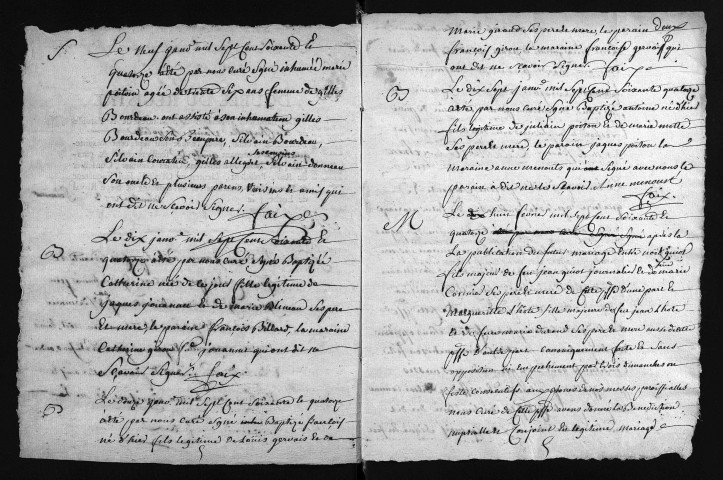 S
Le neuf janvr mil sept cent soixante et
quatorze a été par nous curé signé inhumée marie
poiton agée de trente six ans femme de gilles
Bourdeau ont assisté a son inhumation gilles
Bourdeau son beaupere, Silvain Bourdeau,
Silvain Couratin, gilles allegire, Silvain donneau
son oncle et plusieurs parens voisins et amis qui
ont dit ne scavoir signer. Faix
B
Le dix janvr mil sept cent soixante et
quatorze a été par nous curé signé Baptizée
Catherine née de ce jour fille legitime de
jaques jouanneau et de marie Blineau ses pere
et mere, le parain françois Billard, la maraine
Catherine jouannet qui ont dit ne
scavoir signer. Faix
B
Le douze janvr mil sept cent soixante et quatorze
a été par nous curé signé Baptizé francois
né d'hier fils legitime de Loüis gervais et de
marie giraud ses pere et mere, le parain
françois giron la maraine françoise gervais qui
ont dit ne scavoir signer. Faix
B
Le dix sept janvr mil sept cent soixante quatorze
a été par nous curé signé Baptizé antoine né d'hier
fils legitime de julien poiton et de marie motte
ses pere et mere, le parain jaques poiton la
maraine anne menoust qui a signé avec nous le
parain a dit ne le scavoir. Anne menoust
Faix
M
Le huit fevrier mil sept cent soixante et
quatorze après
la publication de futur mariage entre noël guiot
fils majeur de feu jean guiot journalier et de marie
ses pere et mere de cette psse d'une part et
Margueritte Lhote fille majeure de feu jean Lhote
et de feue maria durand ses pere et mere aussi de cette
psse d'autre part canoniquement faite et sans
opposition ni empechement par trois dimanches ou
feste consecutifs aux prones de nos messes paroissialles
nous curé de cette psse avons donné la Benediction
nuptialle et conjoint en legitime mariage